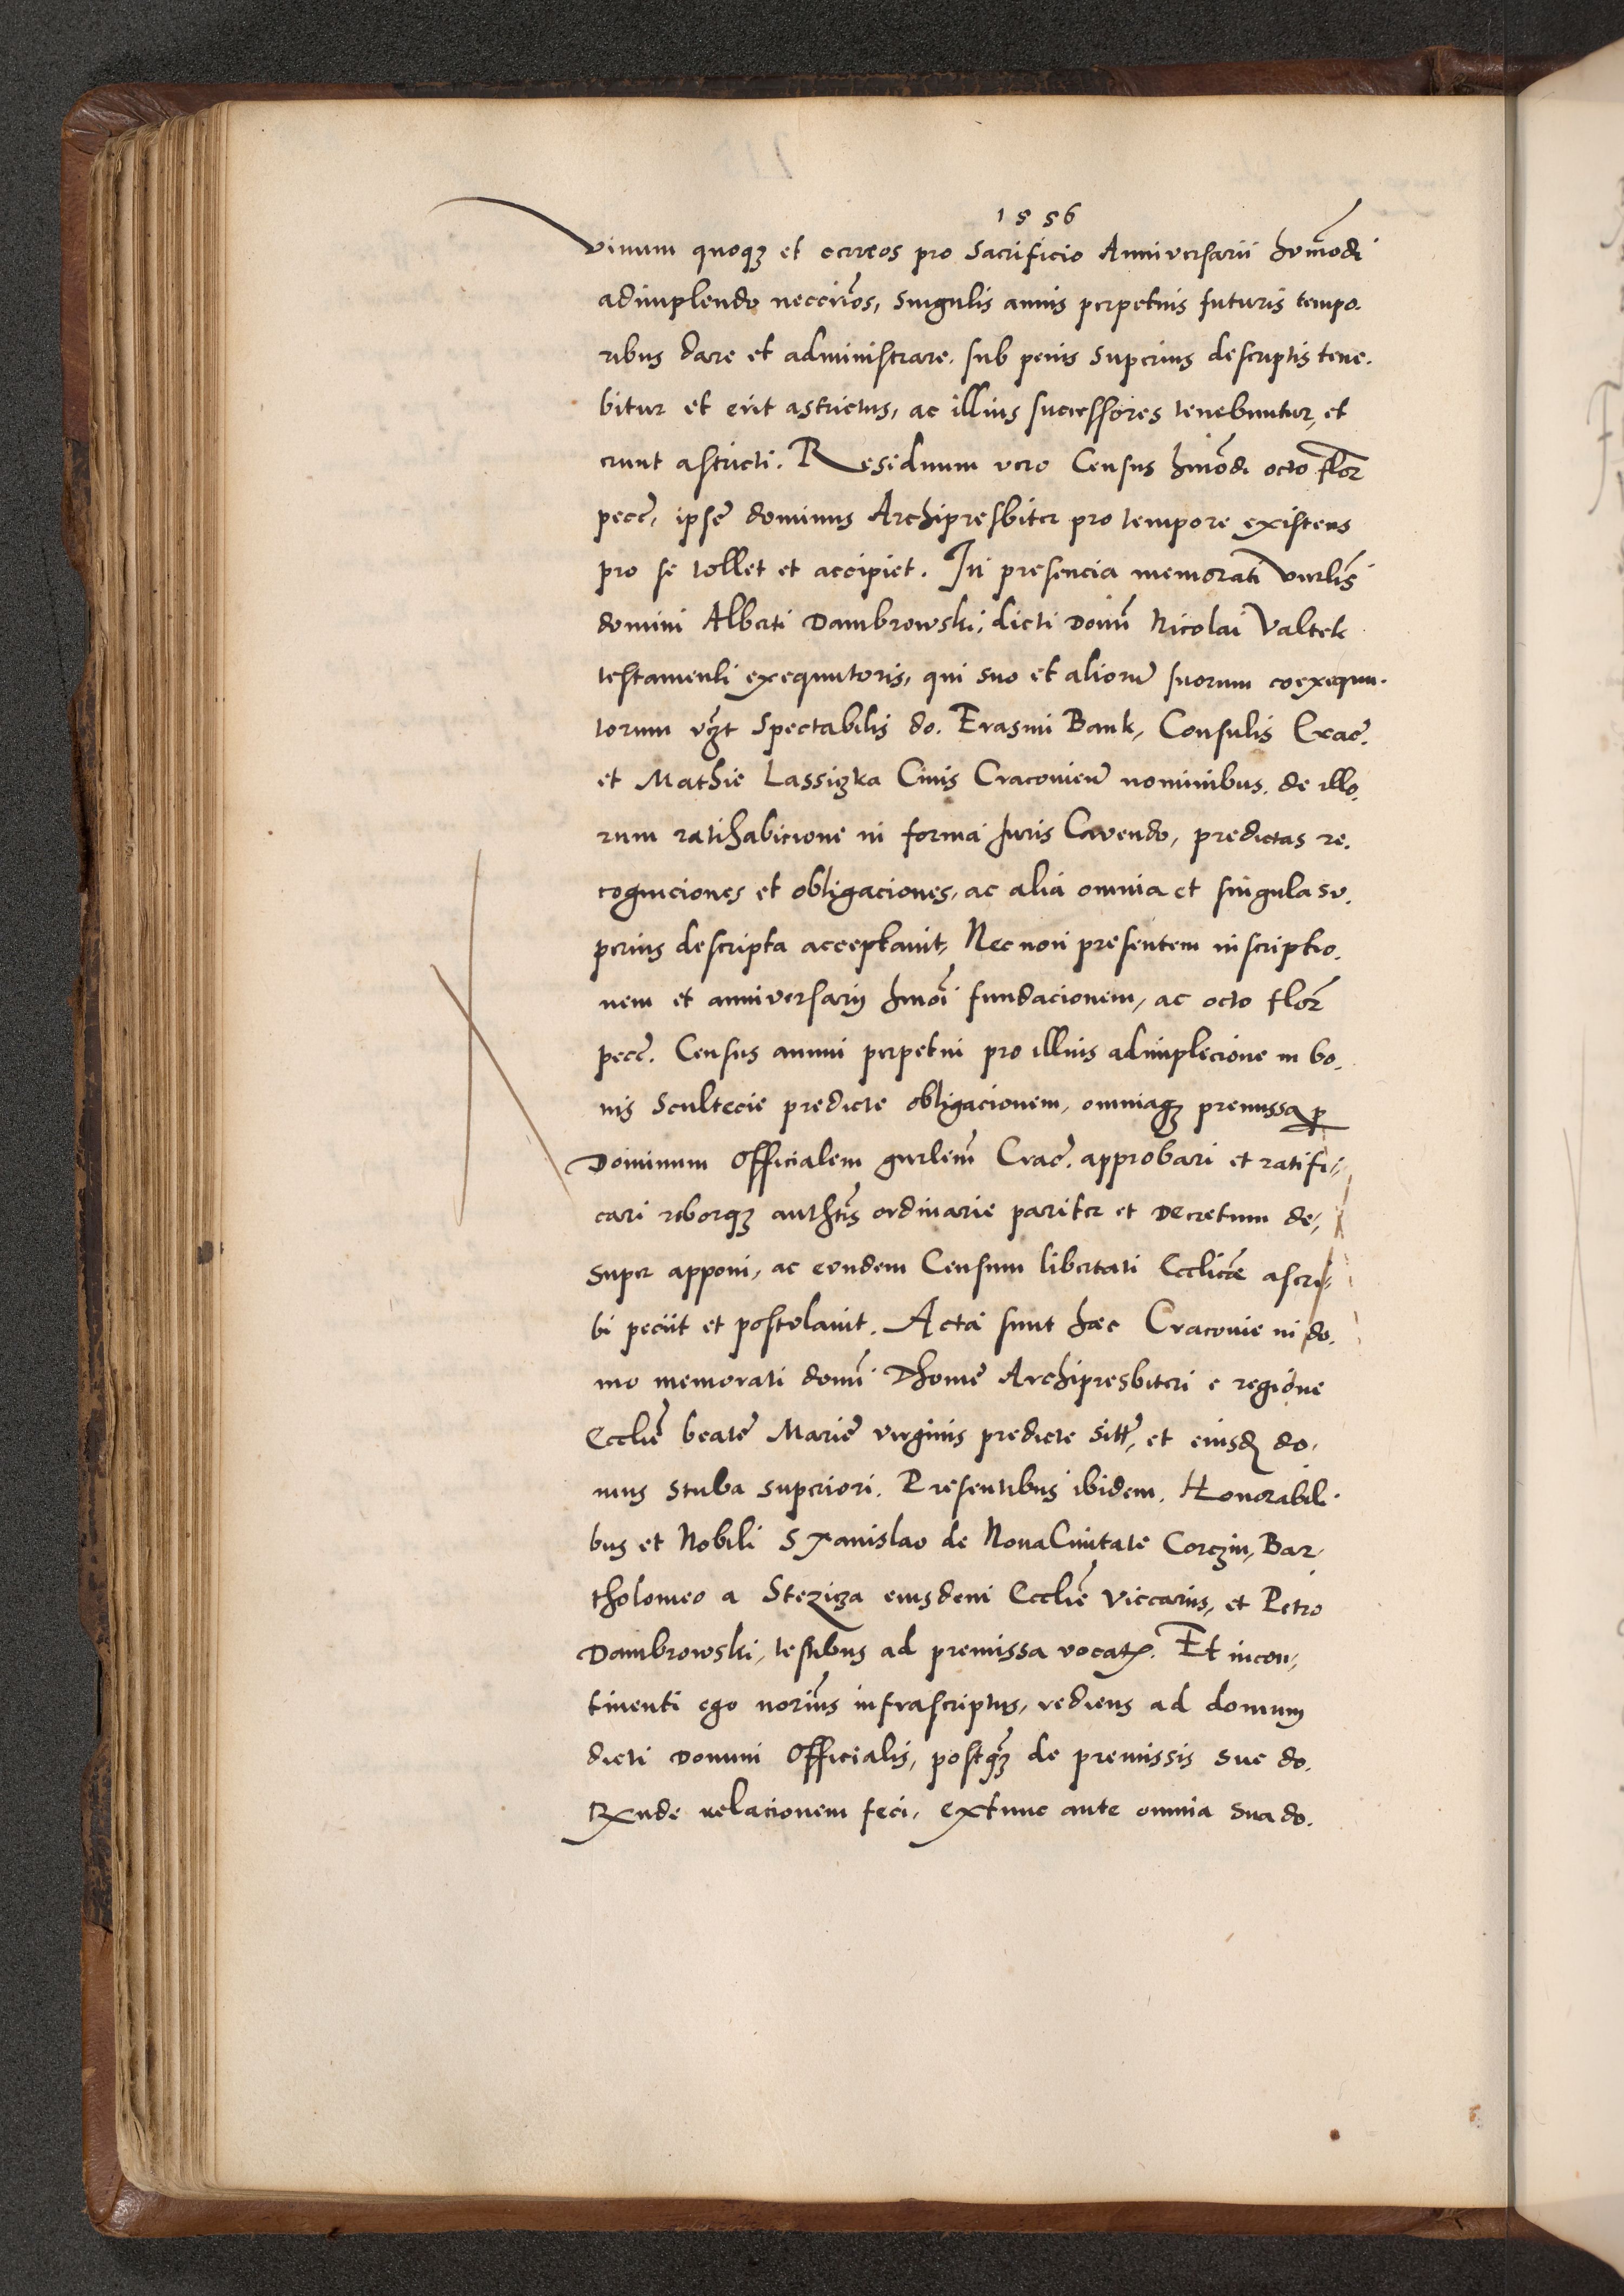 1556
vinum quoqz et cereos pro Sacrificio Anniversarii hmodi
adimplendo neccrios, singulis annis perpetuis futuris tempo.
ribus dare et administrare. sub penis superius descriptis tene.
bitur et erit astrictus, ac illius successores tenebuntur, et
erunt astricti. Residuum vero Census hmodi octo flor
pecc, ipse dominus Archipresbiter pro tempore existens
pro se tollet et accipiet. In presencia memorati
domini Alberti Dambrowski, dicti Domi Nicolai Valtek
testamenti exequutoris, qui suo et alioru suorum coexequu.
torum vzt Spectabilis do. Erasmi Bank, Consulis Crac.
et Mathie Lassizka Civis Cracovien nominibus. de illo.
rum ratihabicione in forma Juris Cavendo, predictas re.
cogniciones et obligaciones, ac alia omnia et singula su.
perius descripta acceptavit, Nec non presentem inscriptio.
nem et anniversarij hmoi fundacionem, ac octo flor
pecc. Census annui perpetui pro illius adimplecione in bo.
nis Scultecie predicte obligacionem, omniaqz premissa p
Dominum Officialem gnrlem Crac. approbari et ratifi,,
cari roborqz authtis ordinarie pariter et Decretum de,,
super apponi, ac eundem Censum libertati Ecclice ascri,,
bi peciit et postulavit. Acta sunt haec Cracovie in do.
mo memorati domi Thome Archipresbiteri e regione
Ecclie beate Marie virginis predicte sitt, et eiusd do.
mus stuba superiori. Presentibus ibidem. Honorabili.
bus et Nobili Stanislao de Nova Civitate Corczin, Bar,
tholomeo a Steziza eiusdem Ecclie Viccariis, et Petro
Dambrowski, testibus ad premissa vocatis. Et incon,,
tinenti ego norius infrascriptus, rediens ad domum
dicti Domini Officialis, postqz de premissis sue do.
Rnde relacionem feci, extunc ante omnia sua do.